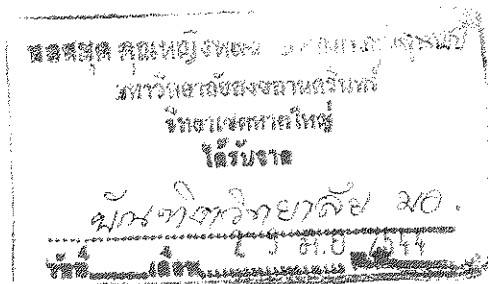 หอสมุด คุณหญิงหลง
มหาวิทยาลัยสงขลานครินทร์
วิทยาเขตหาดใหญ่
ได้รับจาก
บัณฑิตวิทยาลัย มอ.
วันที่ เดือน 2544